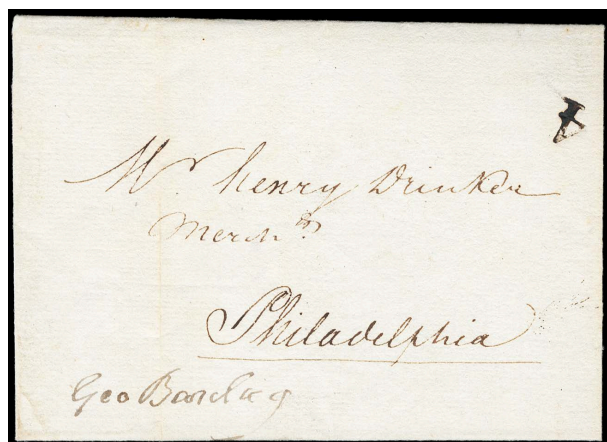 Mr. Henry Drinker
Merch.t
Philadelphia
Geo